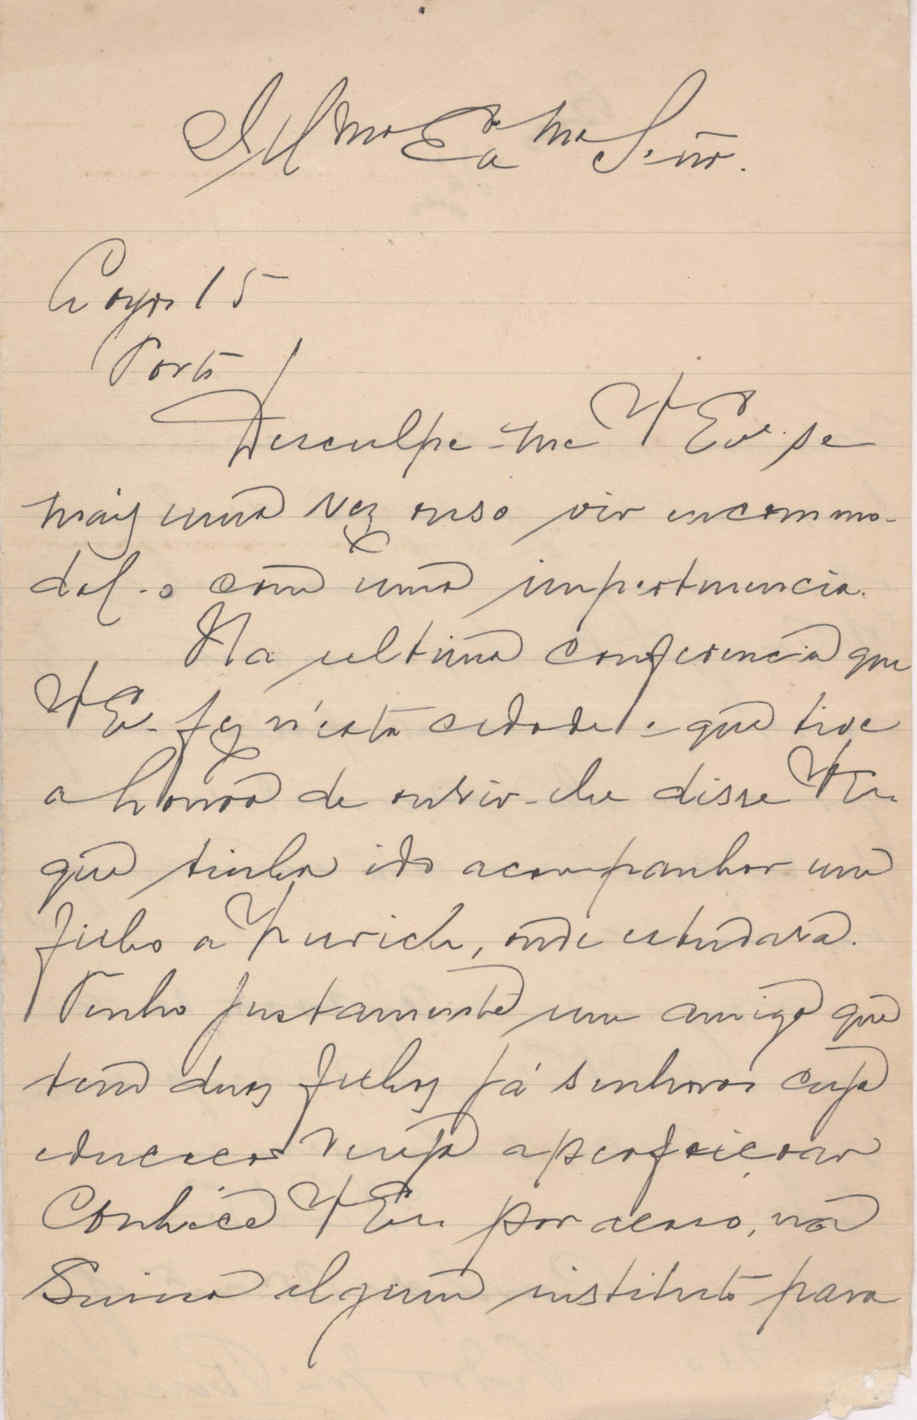 Ill.mo Ex.mo Señr.
15
Porto
Desculpe-me V Ex.ª se
mais uma vez ouso vir incommo-
dal-o com uma impertinencia.
Na ultima conferencia que
V Ex. fez n'esta cidade e que tive
a honra de ouvir-lhe disse V Ex.
que tinha ido acompanhar um
filho a Zurich, onde estudava.
Tenho justamente um amigo que
tem duas filhas já senhoras cuja
educacao deseja aperfeiçoar
Conhece V Ex. por acaso, na
Suissa algum instituto para